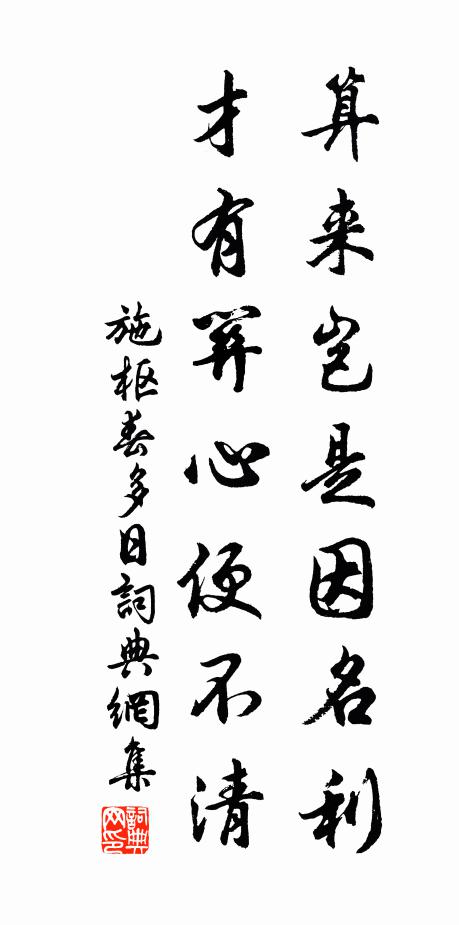 算来岂是因名利
才有關心便不清
施枢春多日詞典網集
詞典网印